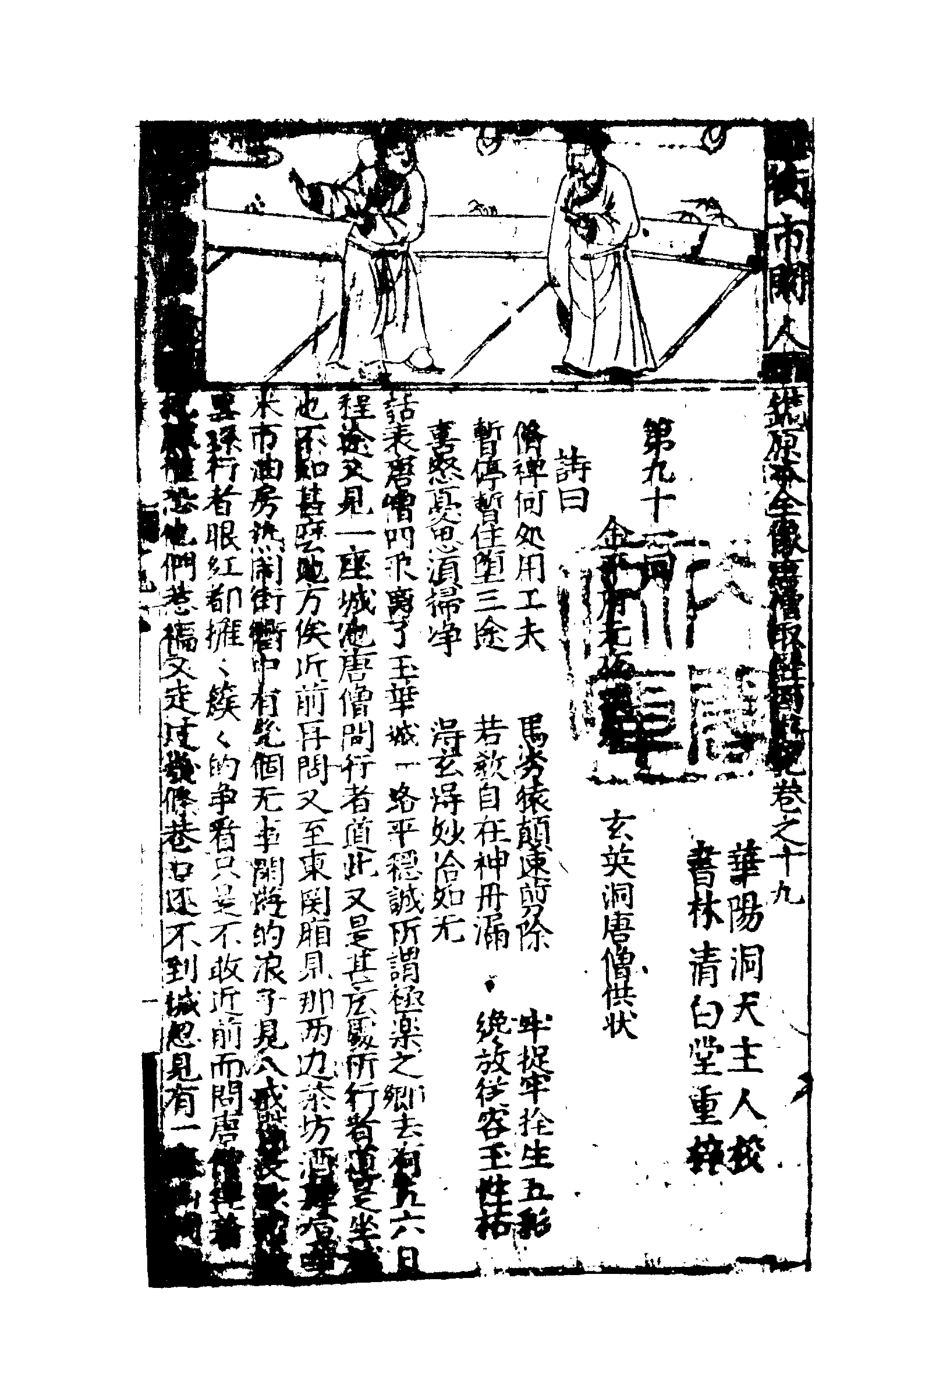 街市閙人
鐫原本全像唐僧取經西遊記卷之十九
華陽洞天主人校
書林清白堂重梓
第九十一回
金平府元夜 玄英洞唐僧供状
詩曰
脩禅何処用工夫 馬劣猿顛速剪除 牢捉牢拴生五彩
暫停暫住墮三途 若教自在神丹漏 纔放從容玉性枯
喜怒憂思湏掃净 得玄得妙恰如无
話表唐僧四衆离了玉華城一路平穩誠所謂極楽之鄉去有五六日
程途又見一座城池唐僧問行者道此又是甚広處所行者道是坐城
也不知甚麽地方俟近前再問又至東関廂見那两边茶坊酒肆喧嘩
米市油房热閙街衢中有几個无事閑游的浪子見八戒
黑孫行者眼红都擁〻簇〻的争看只是不敢近前而問唐僧捏着
把汗惟恐他們惹禍又走过幾條巷口还不到城忽見有一座山門